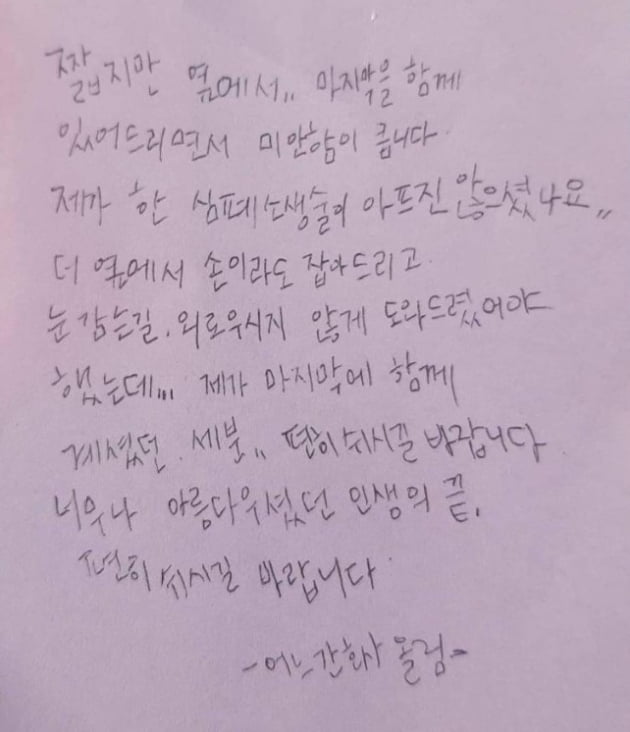 짧지만 옆에서,, 마지막을 함께
있어드리면서 미안함이 큽니다.
제가 한 심폐소생술이 아프진 않으셨나요,,
더 옆에서 손이라도 잡아드리고
눈 감는길. 외로우시지 않게 도와드렸어야
했는데,,, 제가 마지막에 함께
계셨던. 세분,, 편히 쉬시길 바랍니다
너무나 아름다우셨던 인생의 끝,
편히 쉬시길 바랍니다.
- 어느간호사 올림 -